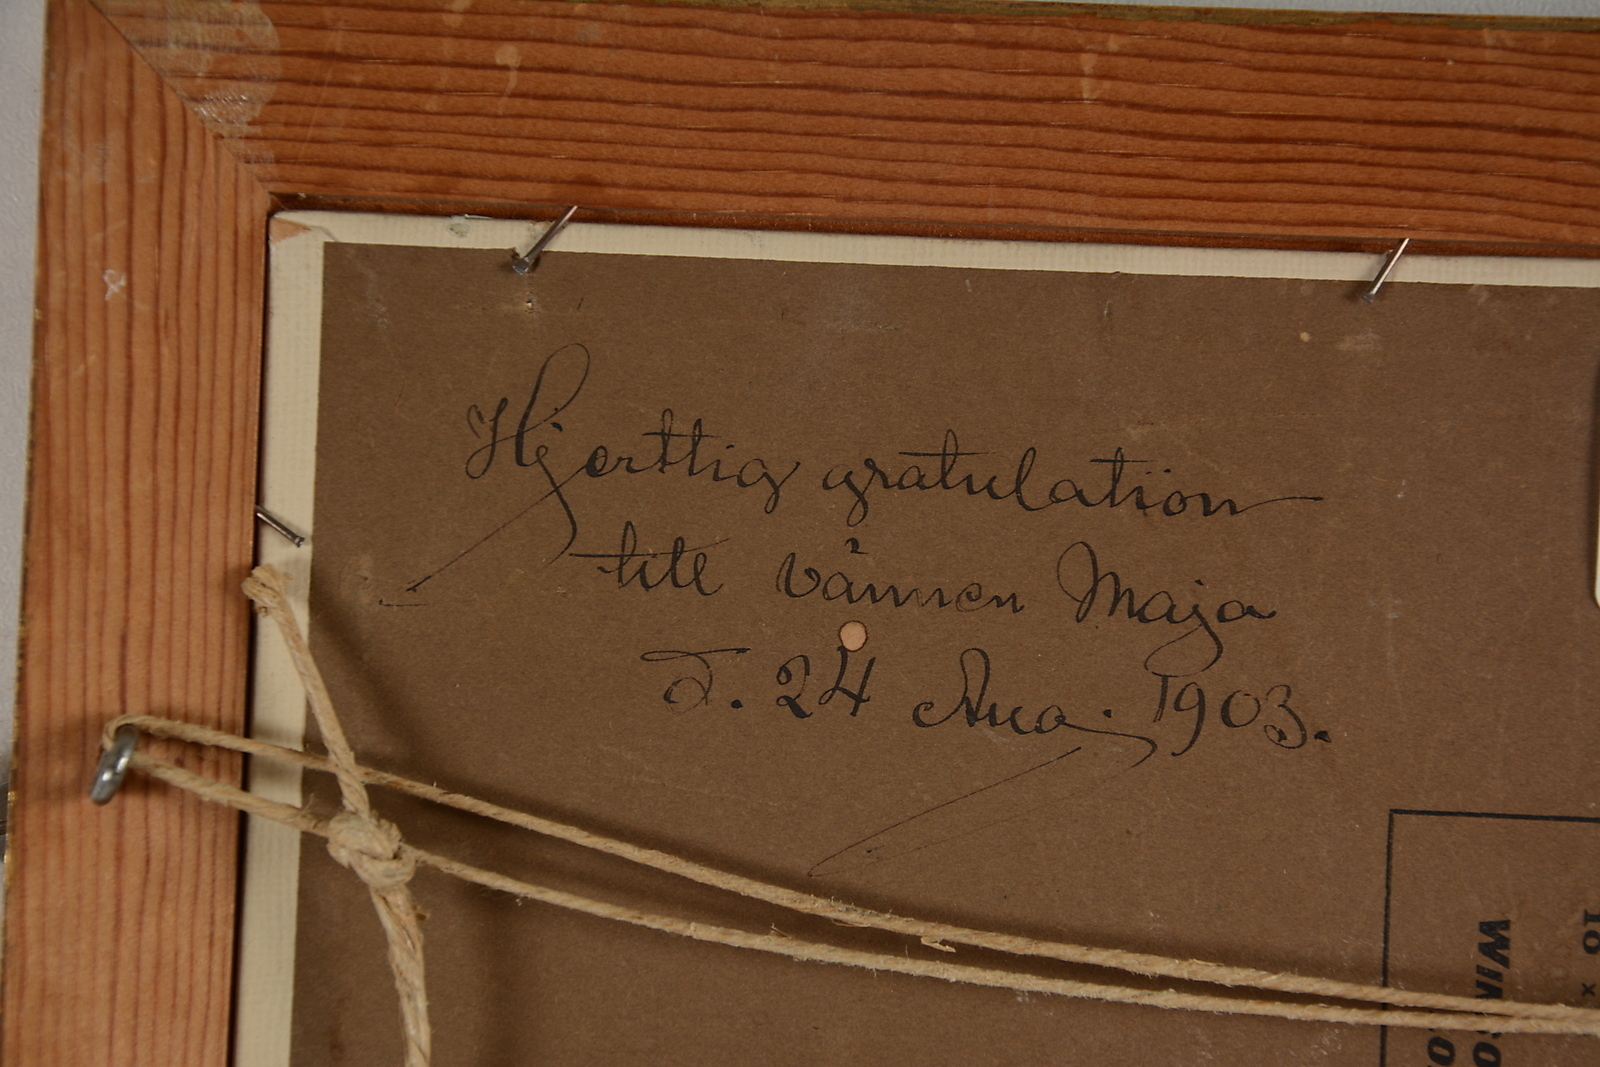 Hjerttig gratulation
till vännen Maja
d. 24 Aug. 1903.
10 x